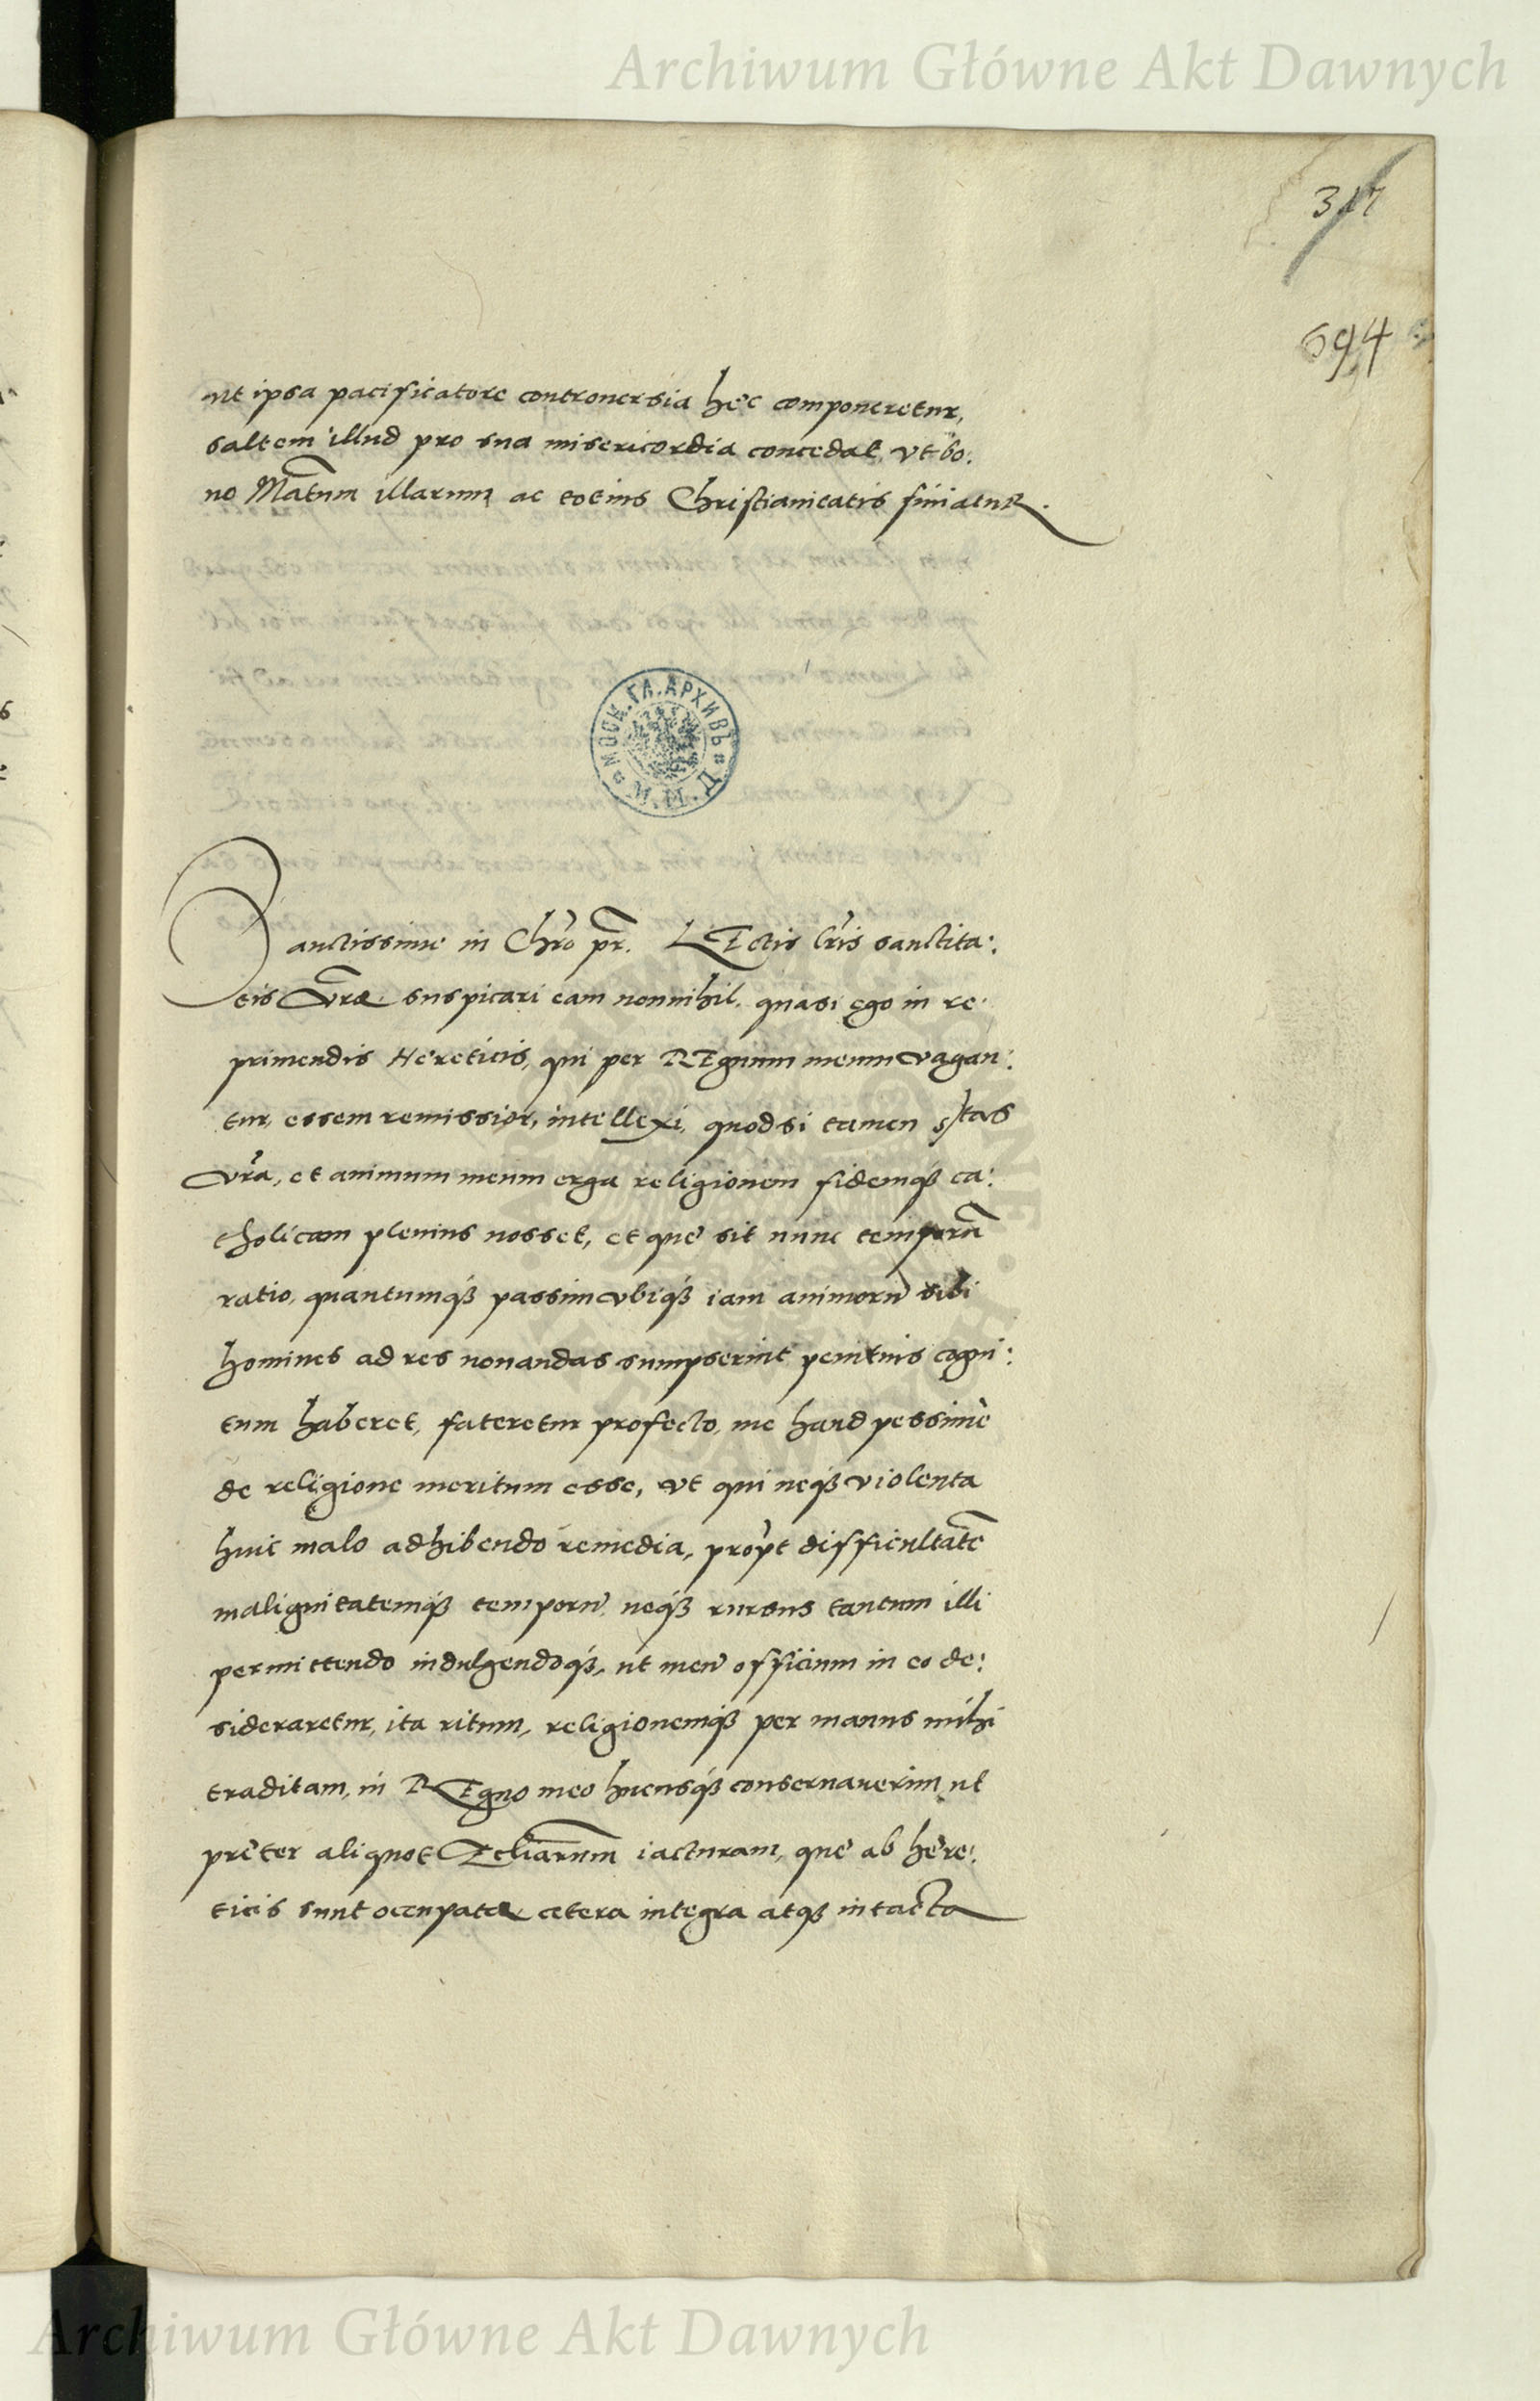 Archiwum Główne Akt Dawnych
317
694
ut ipsa pacificatore controuersia hec componeretur,
saltem illud pro sua misericordia concedat, vt bo:
no Matum illarum ac totius Christianitatis finiatur.
МОСК. ГЛ. АРХИВЪ М. И. Д.
Sanctissime in Chro pr. LEctis lris sanctita:
tis Vrae suspicari eam nonnihil, quasi ego in re:
primendis Hereticis, qui per REgnum meum vagan:
tur, essem remissior, intellexi, quod si tamen Stas
Vra, et animum meum erga religionem fidemq́ ca:
tholicam plenius nosset, et que sit nunc temporu
ratio, quantumq́ passim vbiq́ iam animoru sibi
homines ad res nouandas sumpserint penitus cogni:
tum haberet, fateretur profecto, me haud pessime
de religione meritum esse, vt qui neq́ violenta
huic malo adhibendo remedia, propt difficultate
malignitatemq́ temporu, neq́ rursus tantum illi
permittendo indulgendoq́, ut meu officium in eo de:
sideraretur, ita ritum, religionemq́ per manus mihi
traditam, in REgno meo hucusq́ conseruauerim, ut
preter aliquot Ecliarum iacturam, que ab here:
ticis sunt occupatae cetera integra atq́ intacta
Archiwum Główne Akt Dawnych